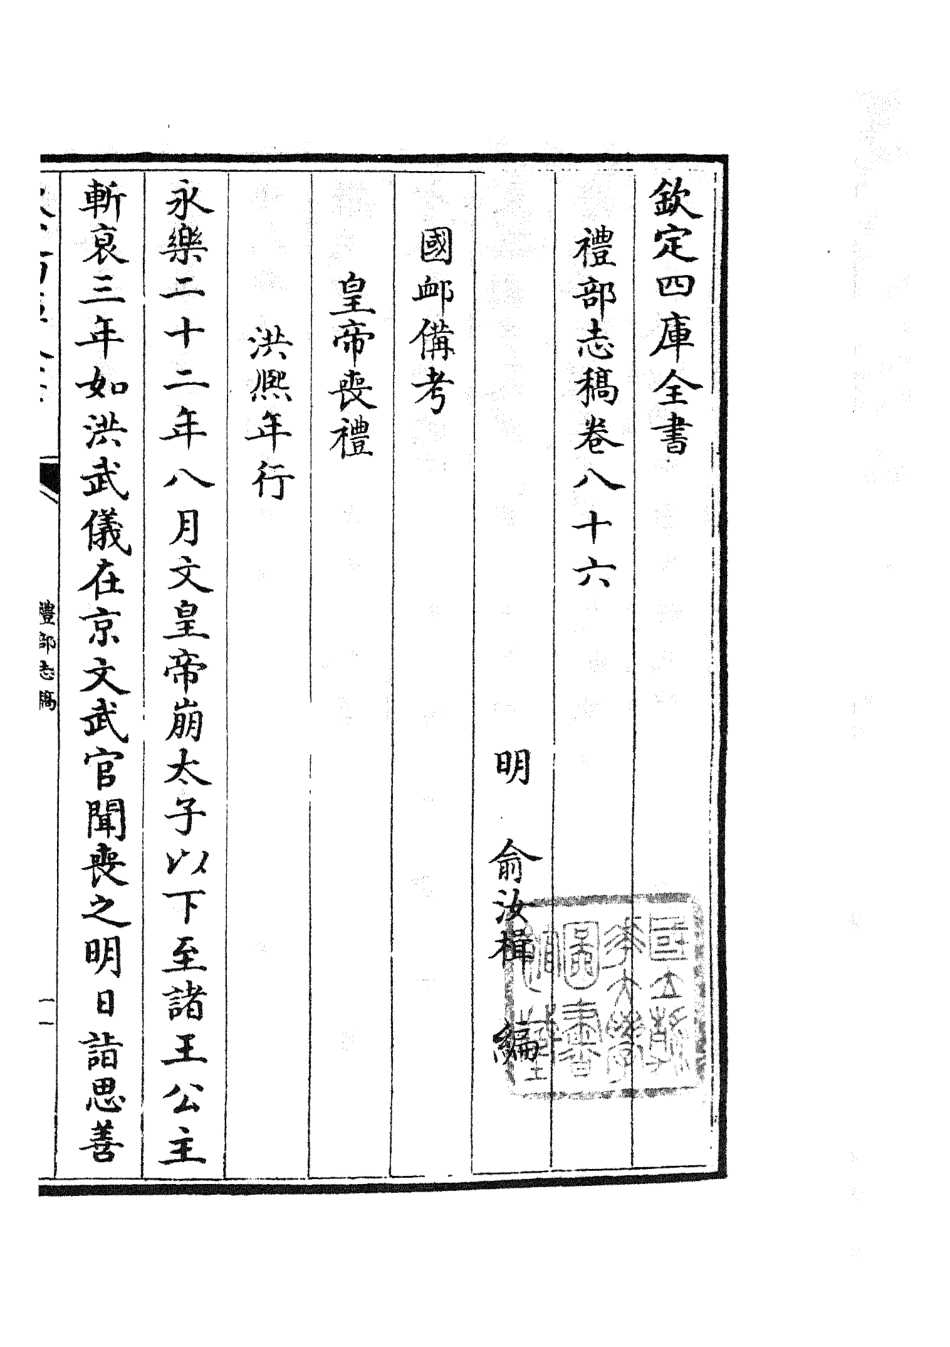 欽定四庫全書
禮部志稿卷八十六
明 俞汝楫 編
國邺備考
皇帝喪禮
洪熙年行
永樂二十二年八月文皇帝崩太子以下至諸王公主
斬衰三年如洪武儀在京文武官聞喪之明日詣思善
禮部志稿
一
國立清華大學圖書館藏